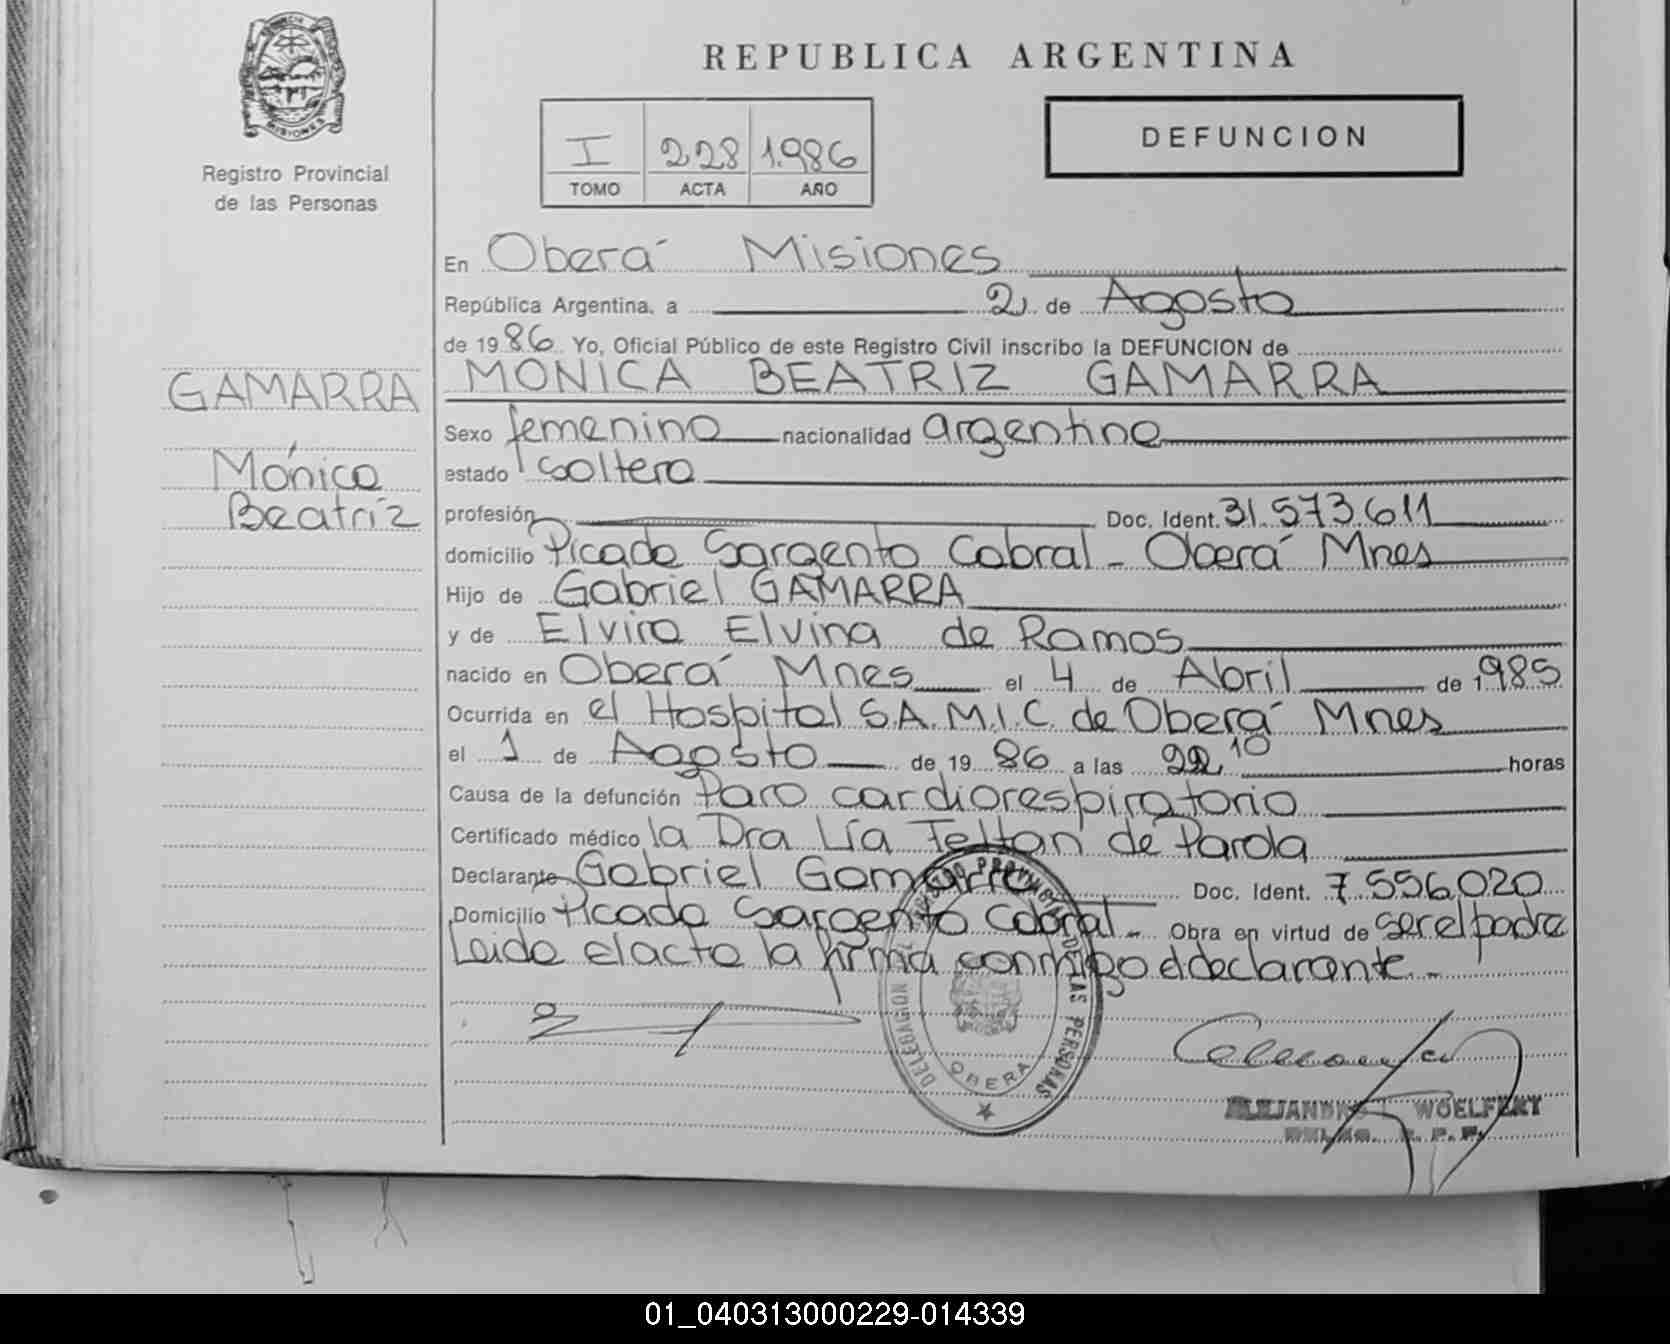 REPUBLICA ARGENTINA
MISIONES
Registro Provincial
de las Personas
I 228 1.986
TOMO ACTA AÑO
DEFUNCION
En Oberá Misiones
República Argentina, a 2 de Agosto
de 1986 Yo, Oficial Público de este Registro Civil inscribo la DEFUNCION de
MONICA BEATRIZ GAMARRA
GAMARRA
Mónica
Beatriz
Sexo femenino nacionalidad argentina
estado soltera
profesión Doc. Ident. 31.573.611
domicilio Picada Sargento Cabral - Oberá Mnes
Hijo de Gabriel GAMARRA
y de Elvira Elvina de Ramos
nacido en Oberá Mnes el 4 de Abril de 1985
Ocurrida en el Hospital S.A.M.I.C. de Oberá Mnes
el 1 de Agosto de 1986 a las 22 10 horas
Causa de la defunción Paro cardiorespiratorio
Certificado médico la Dra Lía de Parola
Declarante Gabriel Gamarra Doc. Ident. 7.556.020
Domicilio Picada Sargento Cabral - Obra en virtud de ser el padre
Leida el acta la firma conmigo el declarante -
REGISTRO PROVINCIAL DE LAS PERSONAS
DELEGACION
OBERA
WOELFERT
R. P. P.
01_040313000229-014339